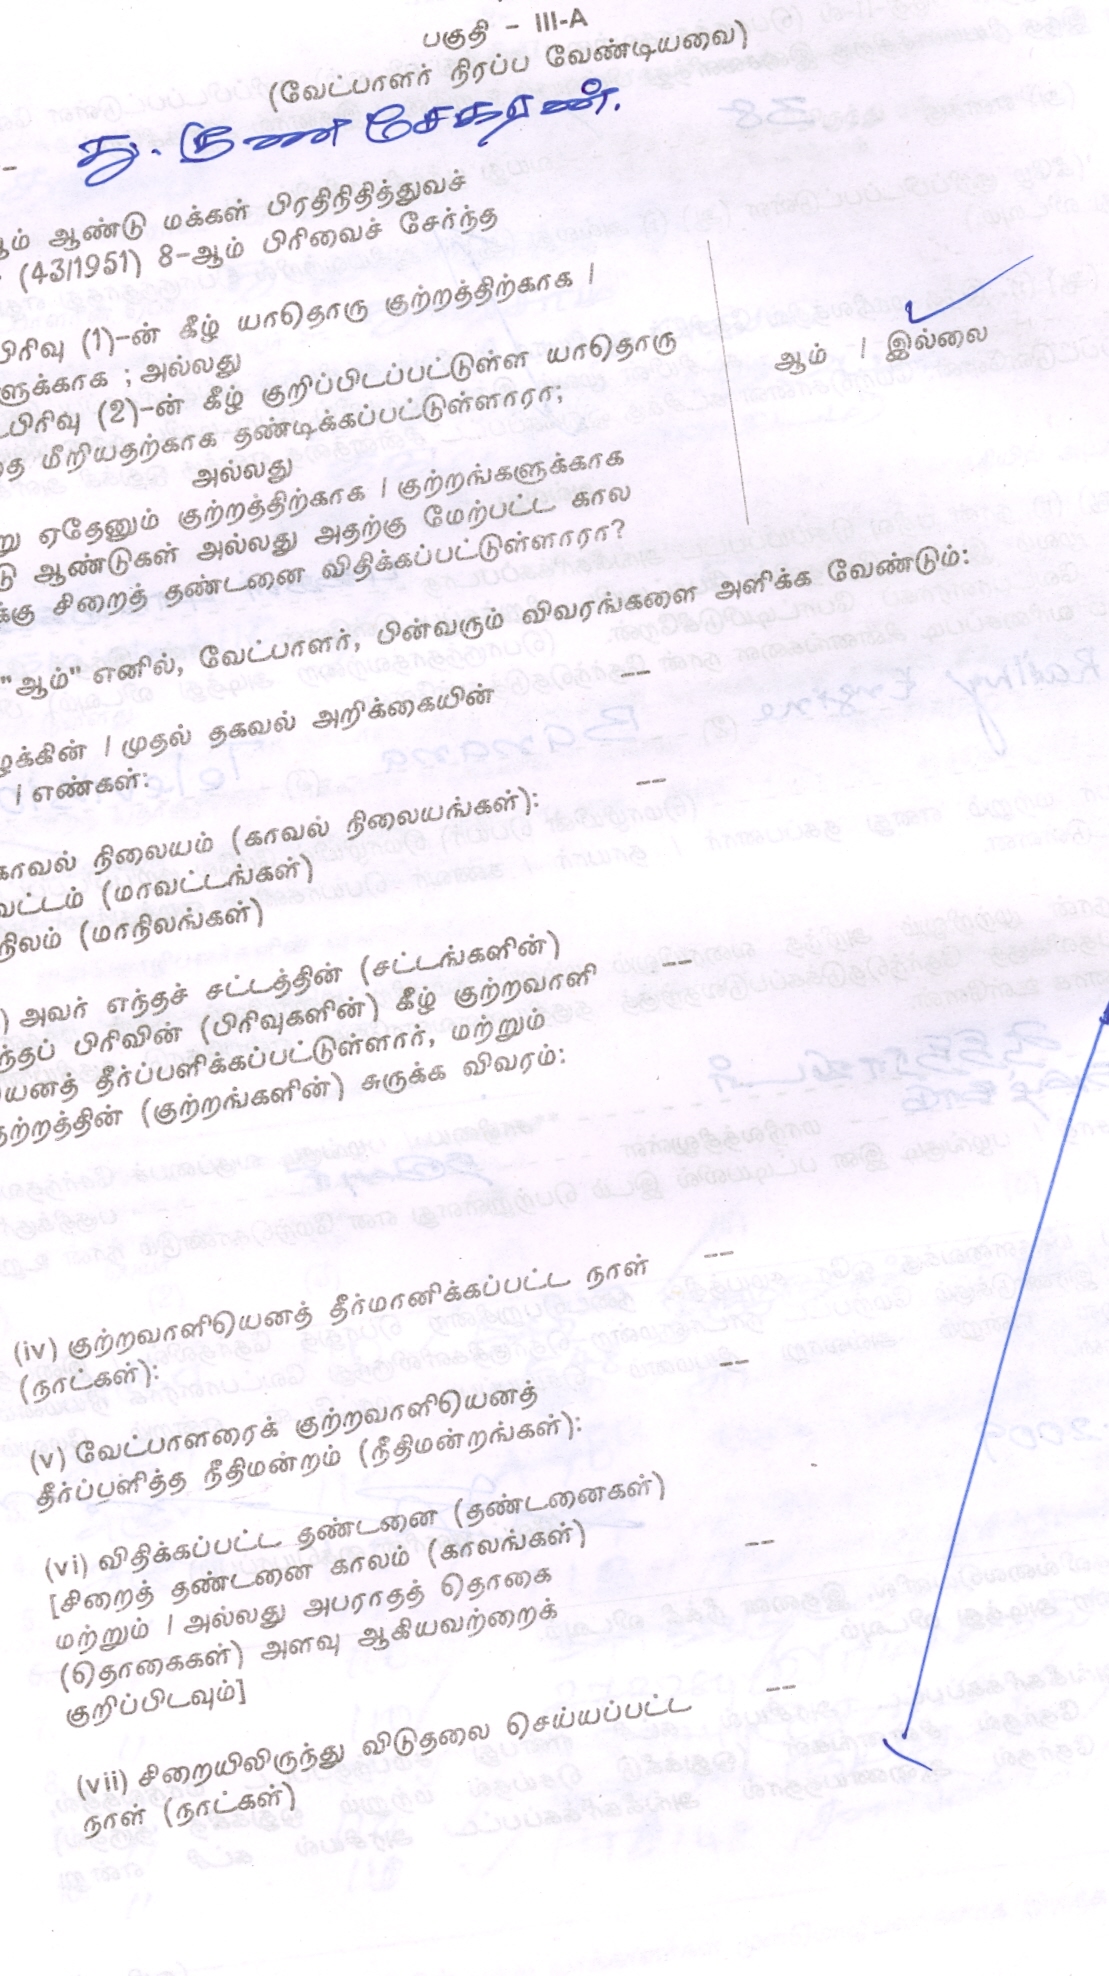 பகுதி – III-A
(வேட்பாளர் நிரப்ப வேண்டியவை)
கு. குணசேகரன்.
ஆம் ஆண்டு மக்கள் பிரதிநிதித்துவச்
(43/1951) 8-ஆம் பிரிவைச் சேர்ந்த
பிரிவு (1)-ன் கீழ் யாதொரு குற்றத்திற்காக /
ளுக்காக ; அல்லது
பிரிவு (2)-ன் கீழ் குறிப்பிடப்பட்டுள்ள யாதொரு
ஆம் / இல்லை
தை மீறியதற்காக தண்டிக்கப்பட்டுள்ளாரா;
அல்லது
று ஏதேனும் குற்றத்திற்காக / குற்றங்களுக்காக
டு ஆண்டுகள் அல்லது அதற்கு மேற்பட்ட கால
க்கு சிறைத் தண்டனை விதிக்கப்பட்டுள்ளாரா?
"ஆம்" எனில், வேட்பாளர், பின்வரும் விவரங்களை அளிக்க வேண்டும்:
ழக்கின் / முதல் தகவல் அறிக்கையின் --
/ எண்கள்:
காவல் நிலையம் (காவல் நிலையங்கள்): --
வட்டம் (மாவட்டங்கள்)
நிலம் (மாநிலங்கள்)
) அவர் எந்தச் சட்டத்தின் (சட்டங்களின்) --
ந்தப் பிரிவின் (பிரிவுகளின்) கீழ் குற்றவாளி
யெனத் தீர்ப்பளிக்கப்பட்டுள்ளார், மற்றும்
குற்றத்தின் (குற்றங்களின்) சுருக்க விவரம்:
(iv) குற்றவாளியெனத் தீர்மானிக்கப்பட்ட நாள் --
(நாட்கள்):
(v) வேட்பாளரைக் குற்றவாளியெனத் --
தீர்ப்பளித்த நீதிமன்றம் (நீதிமன்றங்கள்):
(vi) விதிக்கப்பட்ட தண்டனை (தண்டனைகள்)
[சிறைத் தண்டனை காலம் (காலங்கள்) --
மற்றும் / அல்லது அபராதத் தொகை
(தொகைகள்) அளவு ஆகியவற்றைக்
குறிப்பிடவும்]
(vii) சிறையிலிருந்து விடுதலை செய்யப்பட்ட --
நாள் (நாட்கள்)